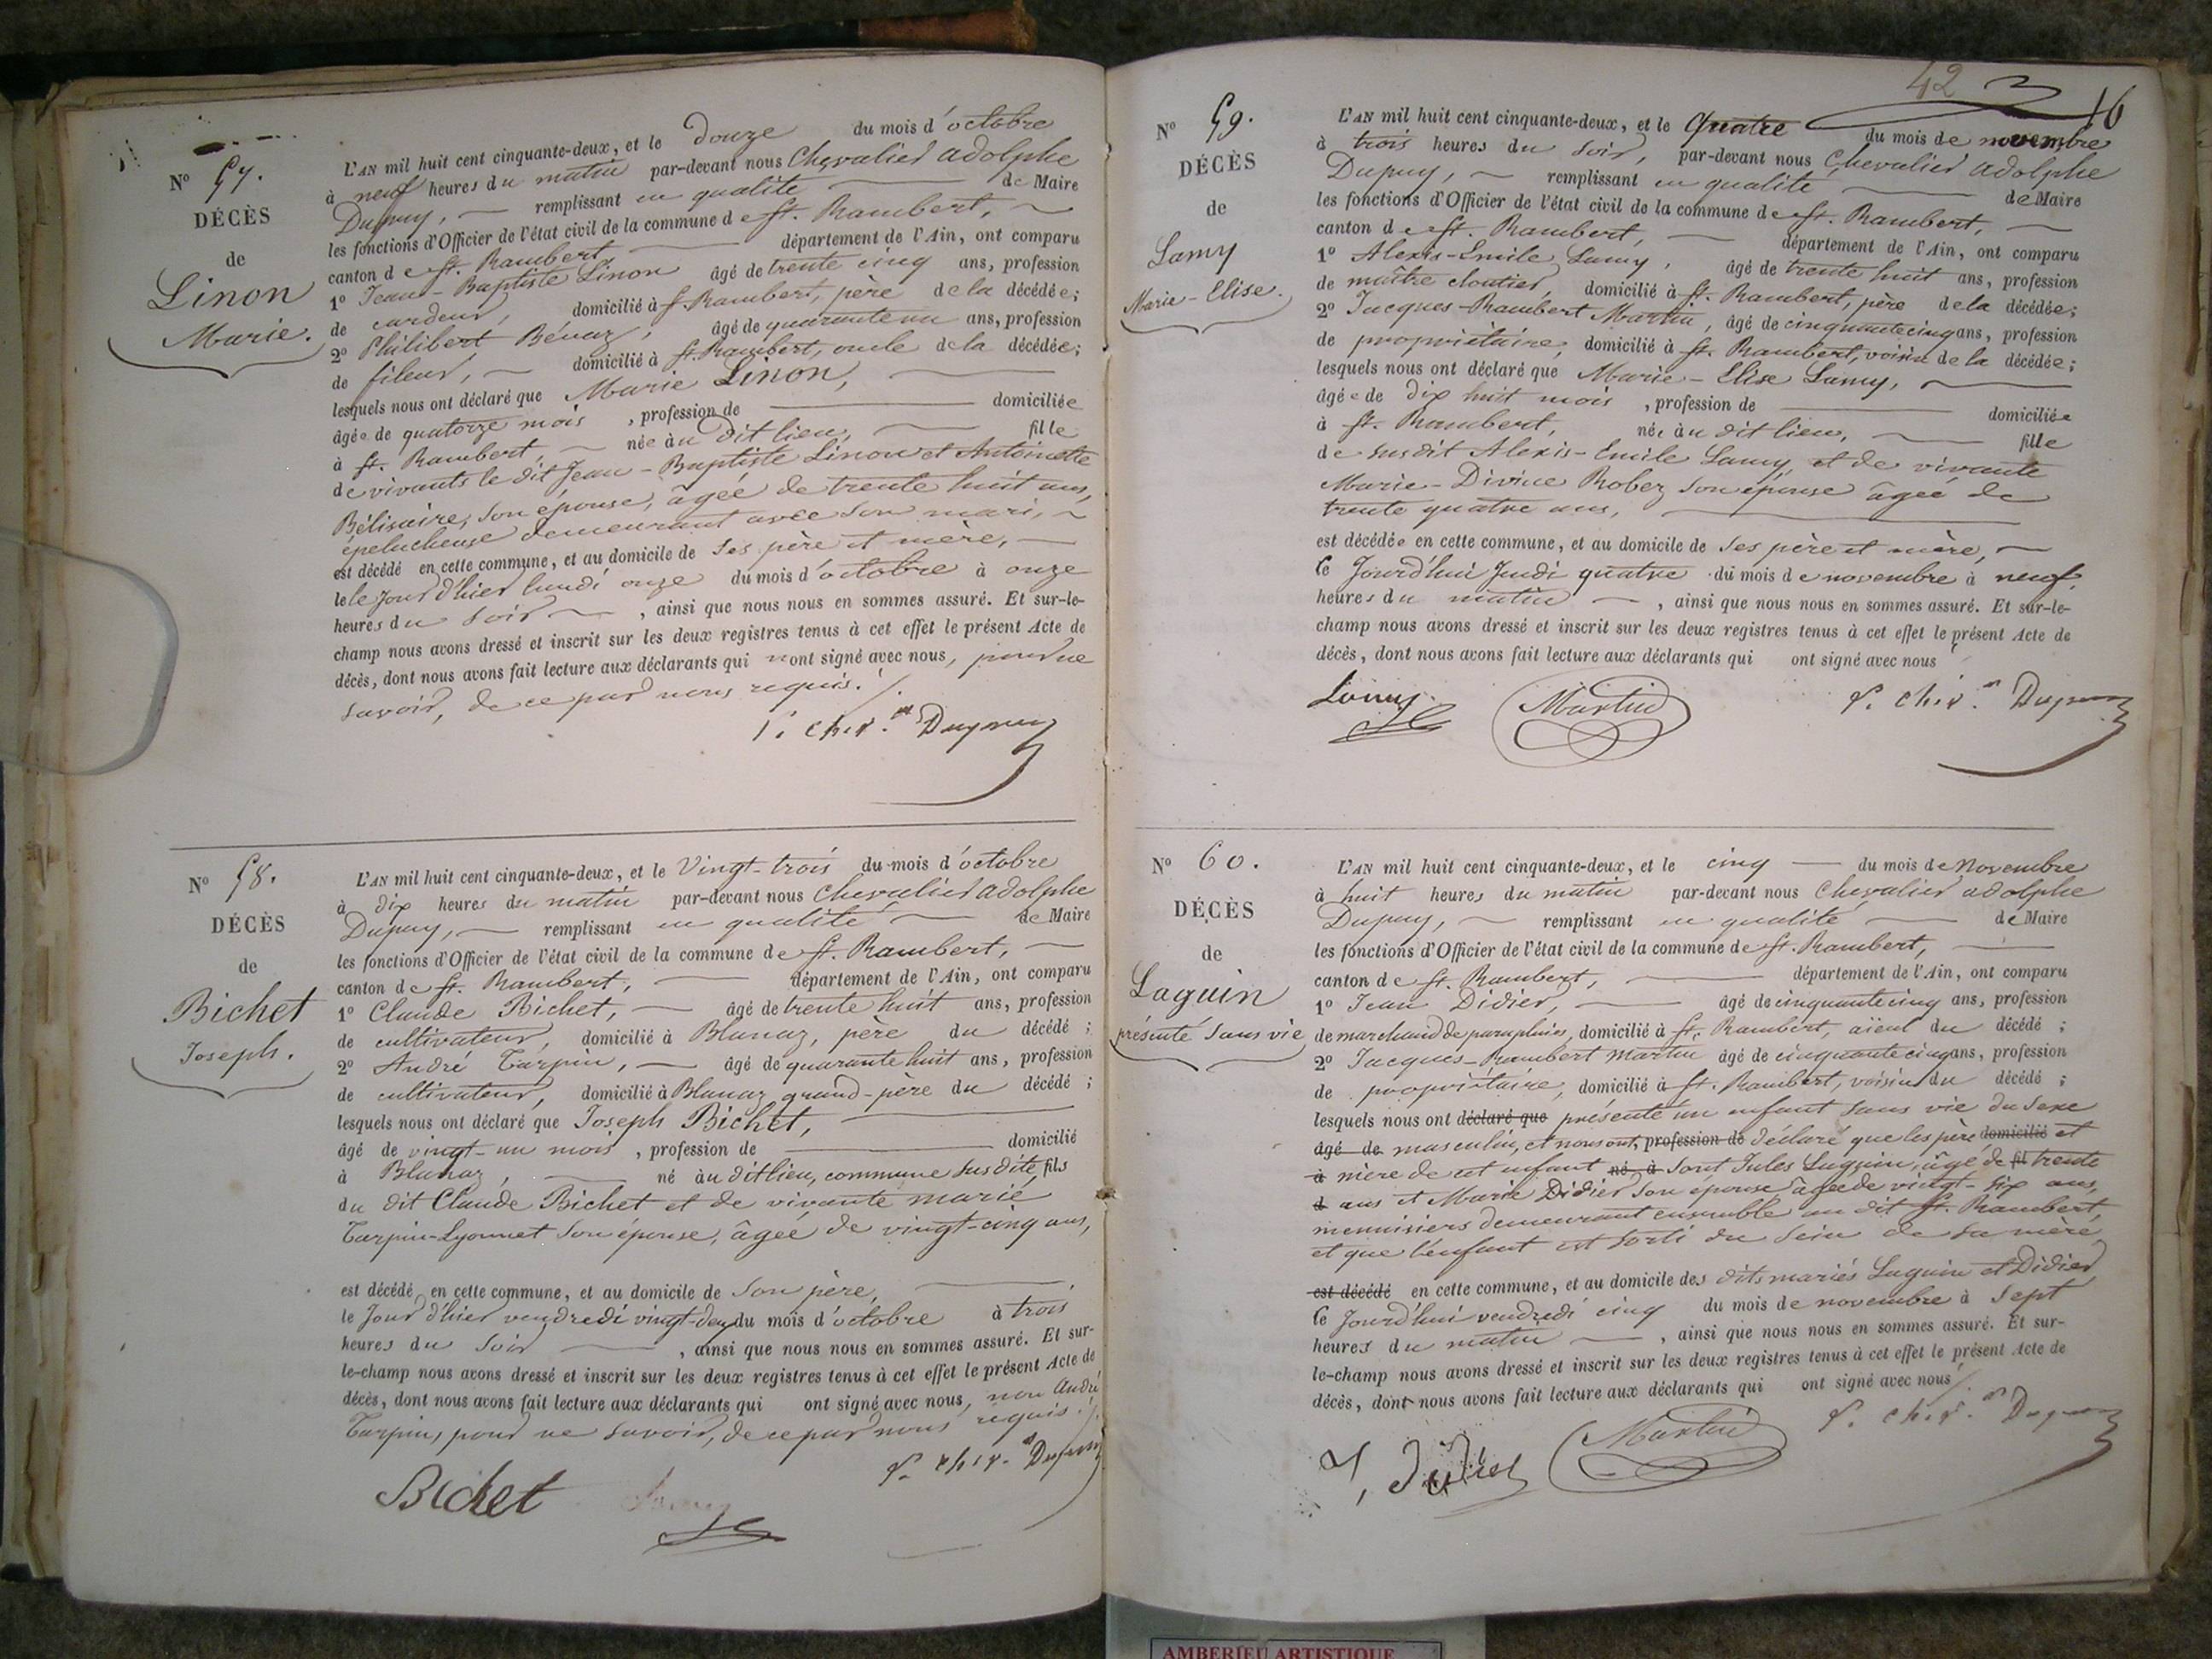 N° 57.
DÉCÈS
de
Linon
Marie.
L'AN mil huit cent cinquante-deux, et le douze du mois d'octobre
à neuf heures du matin par-devant nous Chevalier adolphe
Dupuy, remplissant en qualité de Maire
les fonctions d'Officier de l'état civil de la commune de St. Rambert,
canton de St. Rambert, département de l'Ain, ont comparu
1° Jean-Baptiste Linon âgé de trente cinq ans, profession
de cardeur, domicilié à St. Rambert, père de la décédée;
2° Philibert Bénaz, âgé de quarante un ans, profession
de fileur, domicilié à St. Rambert, oncle de la décédée;
lesquels nous ont déclaré que Marie Linon,
âgée de quatorze mois, profession de domiciliée
à St. Rambert, née àu dit lieu, fille
de vivants le dit Jean-Baptiste Linon et Antoinette
Bélisaire, son épouse, âgée de trente huit ans,
éplucheuse demeurant avec son mari,
est décédé en cette commune, et au domicile de ses père et mère,
le le jour d'hier lundi onze du mois d'octobre à onze
heures du soir, ainsi que nous nous en sommes assuré. Et sur-le-
champ nous avons dressé et inscrit sur les deux registres tenus à cet effet le présent Acte de
décès, dont nous avons fait lecture aux déclarants qui n'ont signé avec nous, pour ne
savoir, de ce par nous requis./.
P. chev.er Dupuy
N° 58.
DÉCÈS
de
Bichet
Joseph.
L'AN mil huit cent cinquante-deux, et le Vingt-trois du mois d'octobre
à dix heures du matin par-devant nous Chevalier adolphe
Dupuy, remplissant en qualité de Maire
les fonctions d'Officier de l'état civil de la commune de St. Rambert,
canton de St. Rambert, département de l'Ain, ont comparu
1° Claude Bichet, âgé de trente huit ans, profession
de cultivateur, domicilié à Blanaz, père du décédé;
2° André Turpin, âgé de quarante huit ans, profession
de cultivateur, domicilié à Blanaz grand-père du décédé;
lesquels nous ont déclaré que Joseph Bichet,
âgé de vingt-un mois, profession de domicilié
à Blanaz, né àu dit lieu, commune susdite, fils
du dit Claude Bichet et de vivante marie
Turpin-Lyonnet son épouse, âgée de vingt-cinq ans,
est décédé en cette commune, et au domicile de son père,
le Jour d'hier vendredi vingt-deux du mois d'octobre à trois
heures du soir, ainsi que nous nous en sommes assuré. Et sur-
le-champ nous avons dressé et inscrit sur les deux registres tenus à cet effet le présent Acte de
décès, dont nous avons fait lecture aux déclarants qui ont signé avec nous, non André
Turpin, pour ne savoir, de ce par nous requis./.
P. chev.er Dupuy
Bichet Lamy
42
16
N° 59.
DÉCÈS
de
Lamy
Marie-Elise.
L'AN mil huit cent cinquante-deux, et le Quatre du mois de novembre
à trois heures du soir, par-devant nous Chevalier adolphe
Dupuy, remplissant en qualité de Maire
les fonctions d'Officier de l'état civil de la commune de St. Rambert,
canton de St. Rambert, département de l'Ain, ont comparu
1° Alexis-Emile Lamy, âgé de trente huit ans, profession
de maître cloutier, domicilié à St. Rambert, père de la décédée;
2° Jacques-Rambert Martin, âgé de cinquante cinq ans, profession
de propriétaire, domicilié à St. Rambert, voisin de la décédée;
lesquels nous ont déclaré que Marie-Elise Lamy,
âgée de dix huit mois, profession de domiciliée
à St. Rambert, née àu dit lieu, fille
de susdit Alexis-Emile Lamy, et de vivante
Marie-Divine Robez son épouse âgée de
trente quatre ans,
est décédée en cette commune, et au domicile de ses père et mère,
le Jourd'hui Jeudi quatre du mois de novembre à neuf
heures du matin, ainsi que nous nous en sommes assuré. Et sur-le-
champ nous avons dressé et inscrit sur les deux registres tenus à cet effet le présent Acte de
décès, dont nous avons fait lecture aux déclarants qui ont signé avec nous
Lamy Martin P. chev.er Dupuy
N° 60.
DÉCÈS
de
Laguin
présenté sans vie
L'AN mil huit cent cinquante-deux, et le cinq du mois de Novembre
à huit heures du matin par-devant nous Chevalier adolphe
Dupuy, remplissant en qualité de Maire
les fonctions d'Officier de l'état civil de la commune de St. Rambert,
canton de St. Rambert, département de l'Ain, ont comparu
1° Jean Didier, âgé de cinquante cinq ans, profession
de marchand de parapluies, domicilié à St. Rambert, aïeul du décédé;
2° Jacques-Rambert Martin âgé de cinquante cinq ans, profession
de propriétaire, domicilié à St. Rambert, voisin du décédé;
lesquels nous ont déclaré que présenté un enfant sans vie du sexe
âgé de masculin, et nous ont, profession de déclaré que les père domicilié et
à mère de cet enfant né à sont Jules Laguin, âgé de fil trente
d ans et Marie Didier son épouse âgée de vingt-six ans,
menuisiers demeurant ensemble au dit St. Rambert,
et que l'enfant est sorti du sein de sa mère
est décédé en cette commune, et au domicile des dits mariés Laguin et Didier
le Jourd'hui vendredi cinq du mois de novembre à sept
heures du matin, ainsi que nous nous en sommes assuré. Et sur-
le-champ nous avons dressé et inscrit sur les deux registres tenus à cet effet le présent Acte de
décès, dont nous avons fait lecture aux déclarants qui ont signé avec nous./.
J, Didier Martin P. chev.er Dupuy
AMBERIEU ARTISTIQUE